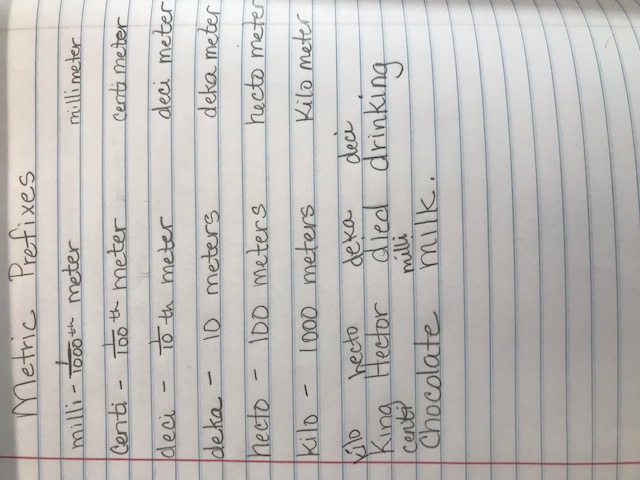 Metric Prefixes
milli - 1/1000th meter millimeter
centi - 1/100th meter centi meter
deci - 1/10th meter deci meter
deka - 10 meters deka meter
hecto - 100 meters hecto meter
kilo - 1000 meters kilo meter
kilo hecto deka deci
King Hector died drinking
centi milli
Chocolate milk.